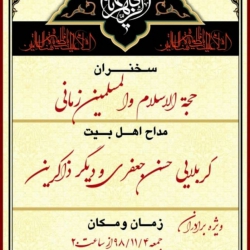 سخنران
حجة الاسلام والمسلمین زمانی
مداح اهل بیت
کربلایی حسن جعفری و دیگر ذاکرین
ویژه برادران
زمان و مکان
جمعه ۹۸/۱۱/۴ از ساعت ۲۰